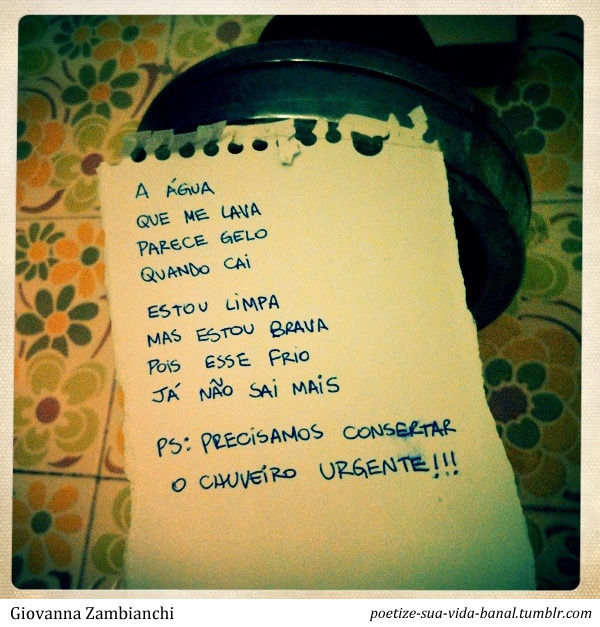 A ÁGUA
QUE ME LAVA
PARECE GELO
QUANDO CAI
ESTOU LIMPA
MAS ESTOU BRAVA
POIS ESSE FRIO
JÁ NÃO SAI MAIS
PS: PRECISAMOS CONSERTAR
O CHUVEIRO URGENTE!!!
Giovanna Zambianchi
poetize-sua-vida-banal.tumblr.com